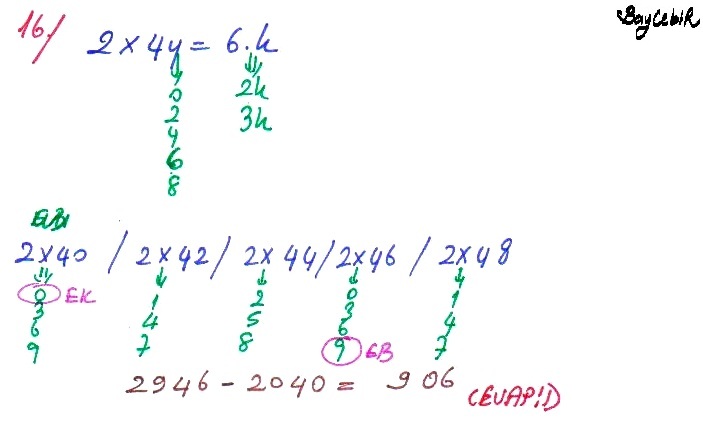 BayCebiR
16/ 2x4y = 6.k
0 2k
2 3k
4
6
8
2x40 / 2x42 / 2x44 / 2x46 / 2x48
0 EK 1 2 0 1
3 4 5 3 4
6 7 8 6 7
9 9 EB
2946 - 2040 = 906
(CEVAP:D)